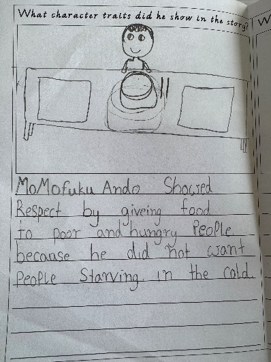 What character traits did he show in the story?
MoMofuku Ando Showed
Respect by giveing food
to poor and hungry People
because he did not want
People Starving in the cold.